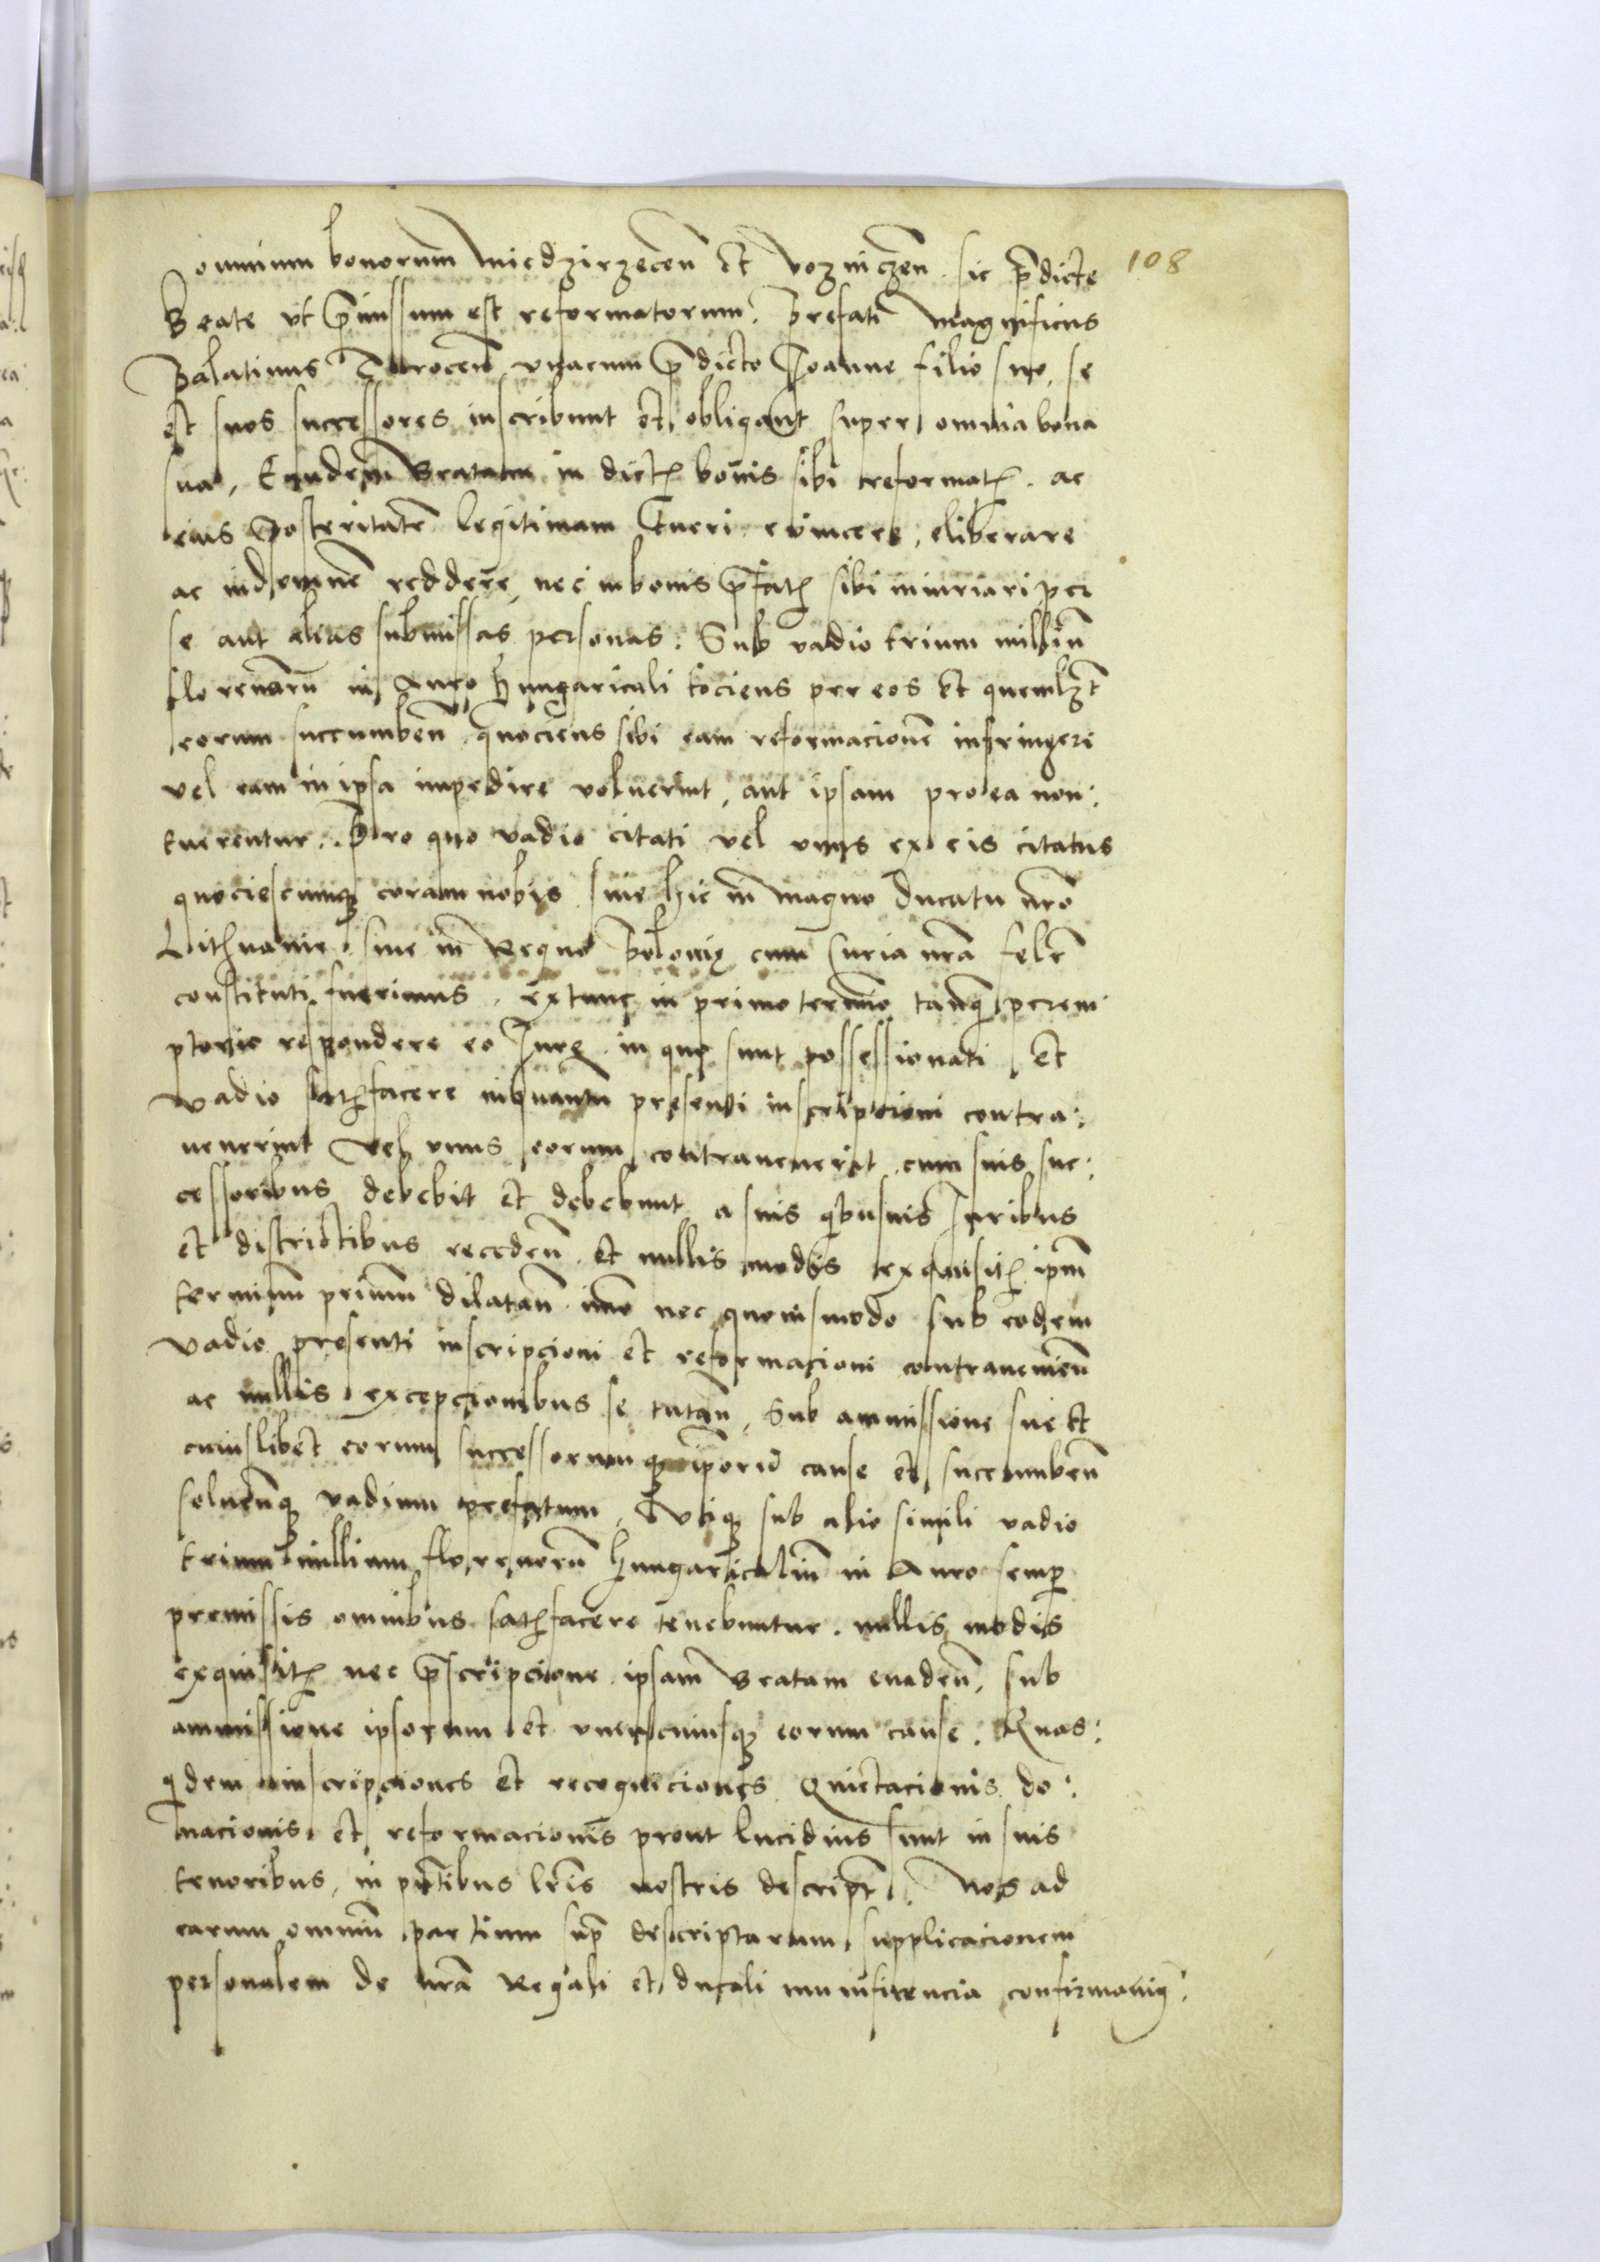 108
omnium bonorum Miedzirzecen̄ et Vozniczen̄. sic p̄dicte
Beate vt p̄missum est reformatorum. Prefati Magnificus
Palatinus Trocen̄ vnacum p̄dicto Joanne filio suo, se
et suos successores inscribunt et obligant super omnia bona
sua, Eandem Beatam in dictꝭ bonis sibi reformatꝭ. ac
eius Posteritatē legitimam tueri euincere, eliberare
ac indemnē reddere, nec in bonis p̄fatꝭ sibi iniuriari per
se aut alias submissas personas. Sub vadio trium milliū
florenorū in Auro Hungaricali tociens per eos et quemlꝫt
eorum succumben̄. quociens sibi eam reformacionē infringere
vel eam in ipsa impedire voluerint, aut ipsam pro ea non:
tuerentur. Pro quo vadio citati vel vnus ex eis citatus
quociescumqꝫ coram nobis siue hic in magno Ducatu nr̄o
Lithuanie. siue in Regno Polonię cum Curia nr̄a felr̄
constituti fuerimus. extunc in primo termīo tanq̄ perem
ptorie respondere eo Jure in quo sunt possessionati, et
vadio satꝭfacere inquantū presenti inscriptioni contra:
uenerint vel vnus eorum contrauenerit cum suis suc:
cessoribus debebit et debebunt a suis qͥbusuis Juribus
et districtibus receden̄. et nullis modis exquisitꝭ ipm̄
terminū primū dilatan̄ imo nec quouismodo sub eodem
vadio presenti inscripcioni et reformacioni contrauenien̄
ac nullis excepcionibus se tutan̄, Sub ammissione sue et
cuiuslibet eorum successorumqꝫ ipsorū cause et succumben̄
soluenqꝫ vadium prefatum, Vtiqꝫ sub alio simili vadio
trium millium florenorū Hungaricaliū in Auro semp̄
premissis omnibus satꝭfacere tenebuntur. nullis modis
exquisitꝭ nec p̄scripcione ipsam Beatam euaden̄, sub
ammissione ipsorum et vniuscuiusqꝫ eorum cause. Quas:
qͥdem inscripciones et recogniciones Quietacionis do:
nacionis et reformacionis prout lucidius sunt in suis
tenoribus, in pn̄tibus lr̄is nostris descript̄. Nos ad
earum omniū partium sup̄ descriptarum supplicacionem
personalem de nr̄a Regali et ducali munificencia confirmauimꝰ: